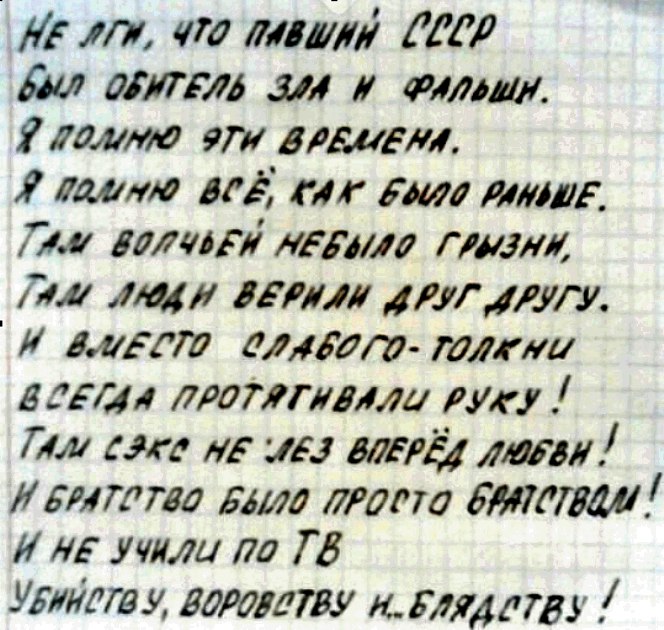 Не лги, что павший СССР
Был обитель зла и фальши.
Я помню эти времена.
Я помню всё, как было раньше.
Там волчьей небыло грызни,
Там люди верили друг другу.
И вместо слабого-толкни
всегда протягивали руку!
Там сэкс не лез вперёд любви!
И братство было просто братством!
И не учили по ТВ
Убийству, воровству и..блядству!